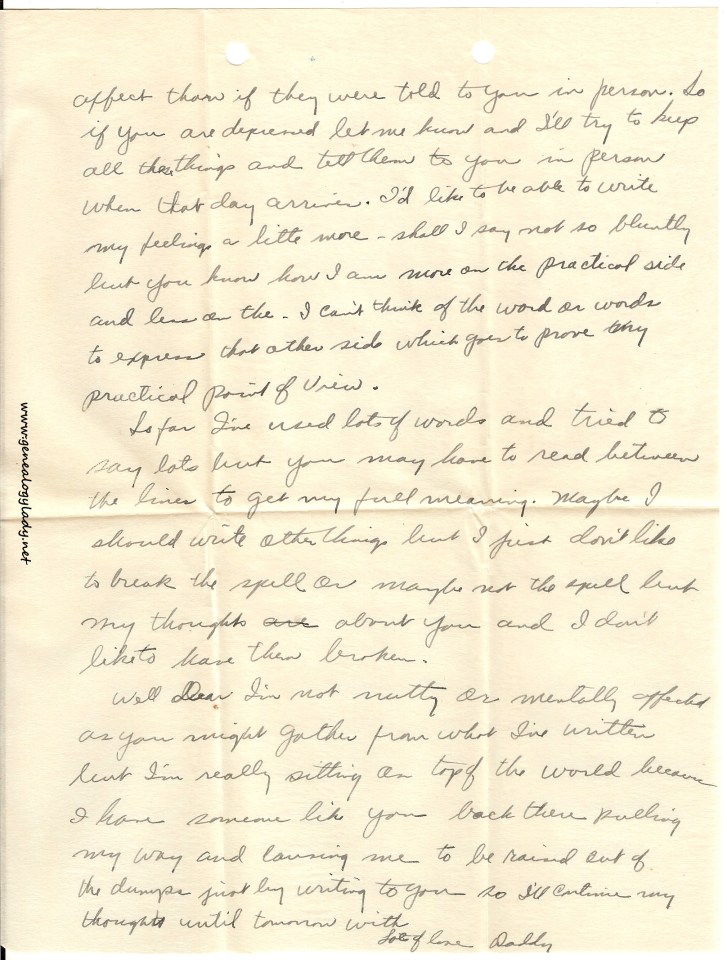 affect than if they were told to you in person. So
if you are depressed let me know and I'll try to keep
all the things and tell them to you in person
when that day arrives. I'd like to be able to write
my feelings a little more - shall I say not so bluntly
but you know how I am more on the practical side
and less on the - I can't think of the word or words
to express that other side which goes to prove my
practical point of view.
So far I've used lots of words and tried to
say lots but you may have to read between
the lines to get my full meaning. Maybe I
should write other things but I just don't like
to break the spell or maybe not the spell but
my thoughts are about you and I don't
like to have them broken.
Well Dear I'm not nutty or mentally affected
as you might gather from what I've written
but I'm really sitting on top of the world because
I have someone like you back there pulling
my way and causing me to be raised out of
the dumps just by writing to you so I'll continue my
thoughts until tomorrow with
Lots of love Daddy
www.genealogylady.net